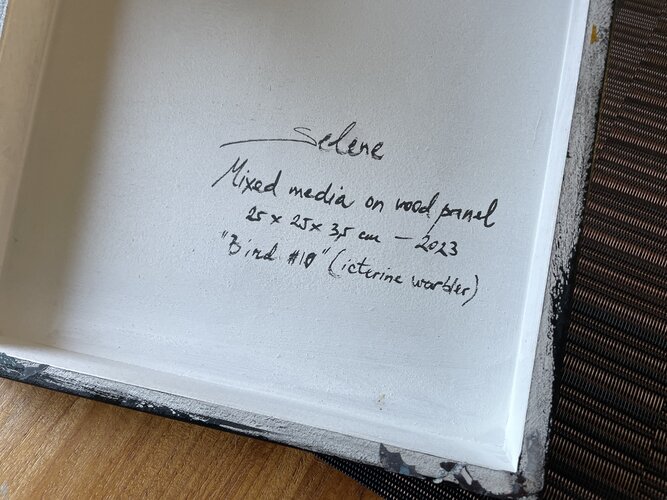 Selene
Mixed media on wood panel
25 x 25 x 3,5 cm – 2023
"Bird #10" (icterine warbler)